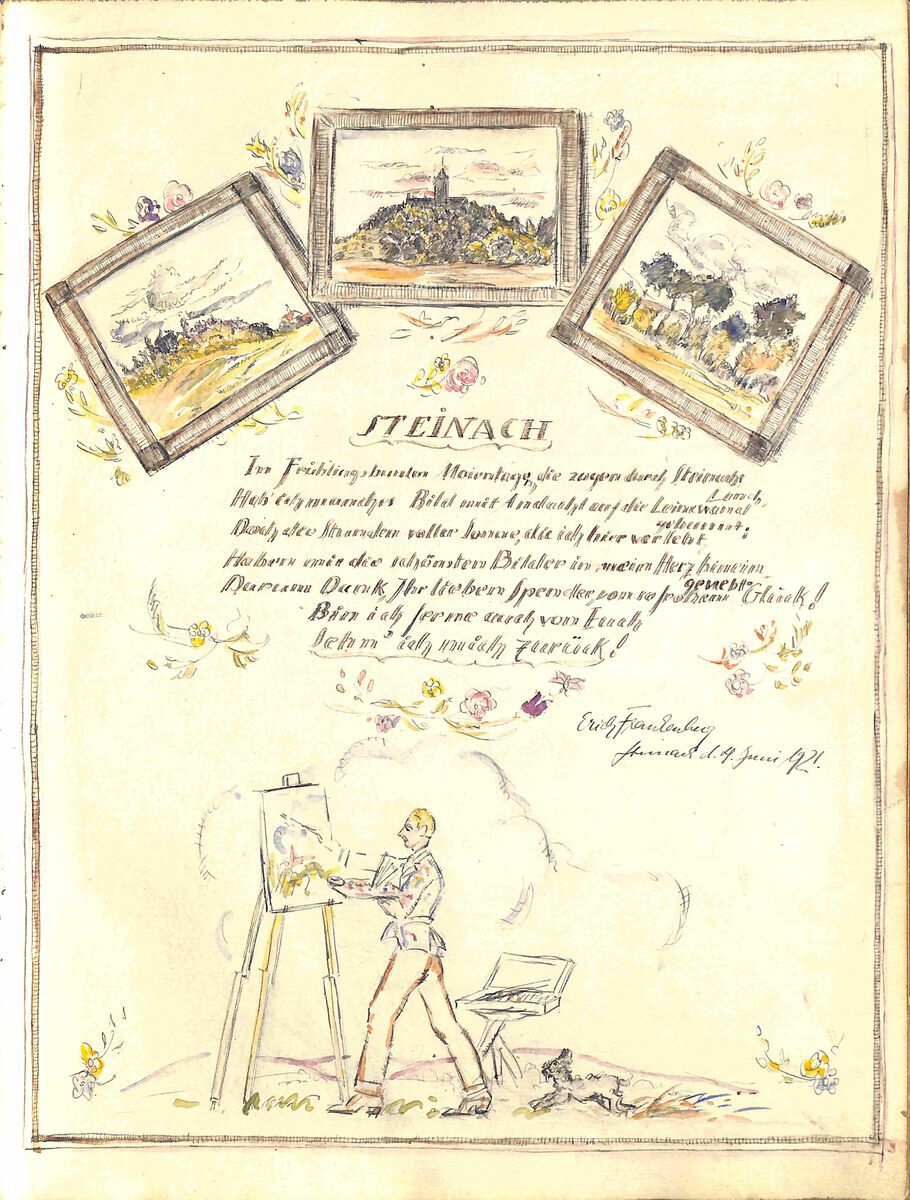 STEINACH
Im Frühlingsbunten Maientage, die zogen durch Steinachs
Hab' ich manches Bild mit Andacht auf die Leinewand
Doch die Stunden voller Sonne, die ich hier verlebt
Haben mir die schönsten Bilder in mein Herz hinein
gewebt:
Darum Dank, Ihr lieben Spender, von so frohem Glück!
Bin ich ferne auch von Euch
Sehn' ich mich zurück!
Erich Frankenberg
Steinach d. 4. Juni 1921.